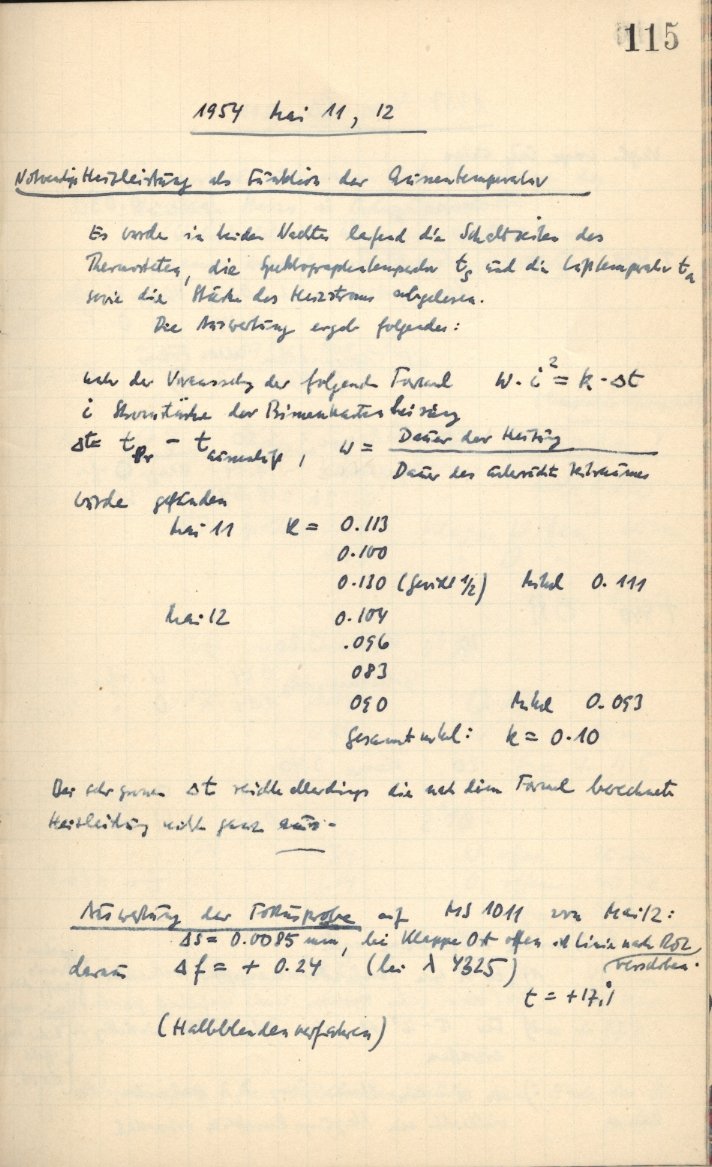 115
1954 Mai 11, 12
Notwendige Heizleistung als Funktion der Aussentemperatur
Es wurde in beiden Nächten laufend die Schaltzeiten des
Thermostaten, die Spektrographentemperatur ts und die Lufttemperatur ta
sowie die Stärke des Heizstroms abgelesen.
Die Auswertung ergab folgendes:
unter der Voraussetzg der folgenden Formel w · i² = k · Δt
i Stromstärke der Prismenkasten heizung
Δt = tPr − taussenluft, w = Dauer der Heizung
Dauer des Zeitraumes
wurde gefunden
Mai 11 k = 0.113
0.100
0.130 (Gewicht 1/2) Mittel 0.111
Mai 12 0.104
.096
083
090 Mittel 0.093
Gesamtmittel: k = 0.10
Bei sehr grossen Δt reichte allerdings die nach dieser Formel berechnete
Heizleistung nicht ganz aus.
Auswertung der Fokusprobe auf MS 1011 von Mai 12:
ΔS = 0.0085 mm, bei Klappe Ost offen ist Linie nach Rot
verschoben.
daraus Δf = + 0.24 (bei λ 4325)
t = +17.°1
(Halbblendenverfahren)